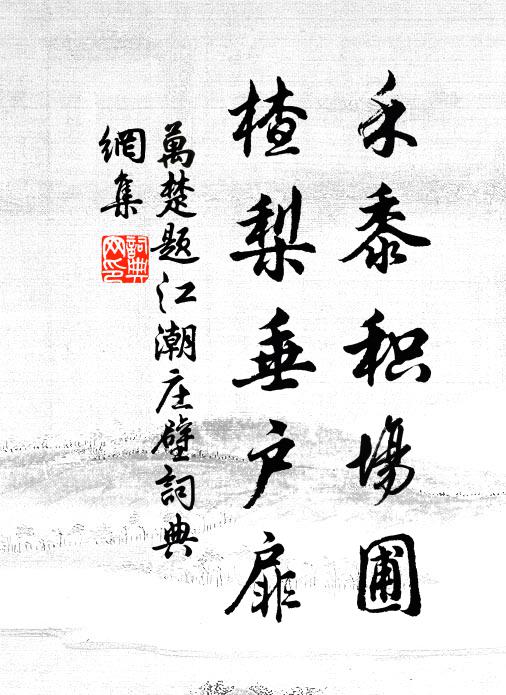 禾黍积場圃
楂梨垂户扉
萬楚题江潮庄壁詞典
網集
詞典
网印